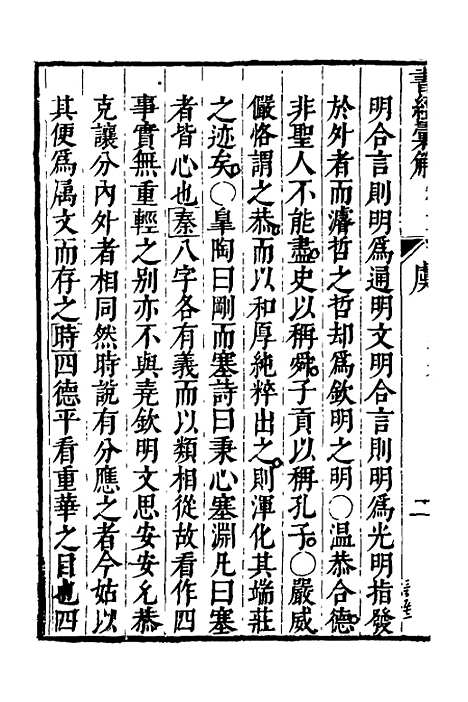 書經彙解
虞
二
明合言則明爲通明文明合言則明爲光明指發
於外者而濬哲之哲却爲欽明之明〇温恭合德
非聖人不能盡史以稱舜子貢以稱孔子〇嚴威
儼恪謂之恭而以和厚純粹出之則渾化其端莊
之迹矣〇臯陶曰剛而塞詩曰秉心塞淵凡曰塞
者皆心也秦八字各有義而以類相從故看作四
事實無重輕之别亦不與堯欽明文思安安允恭
克讓分內外者相同然時說有分應之者今姑以
其便爲属文而存之時四德平看重華之目也四